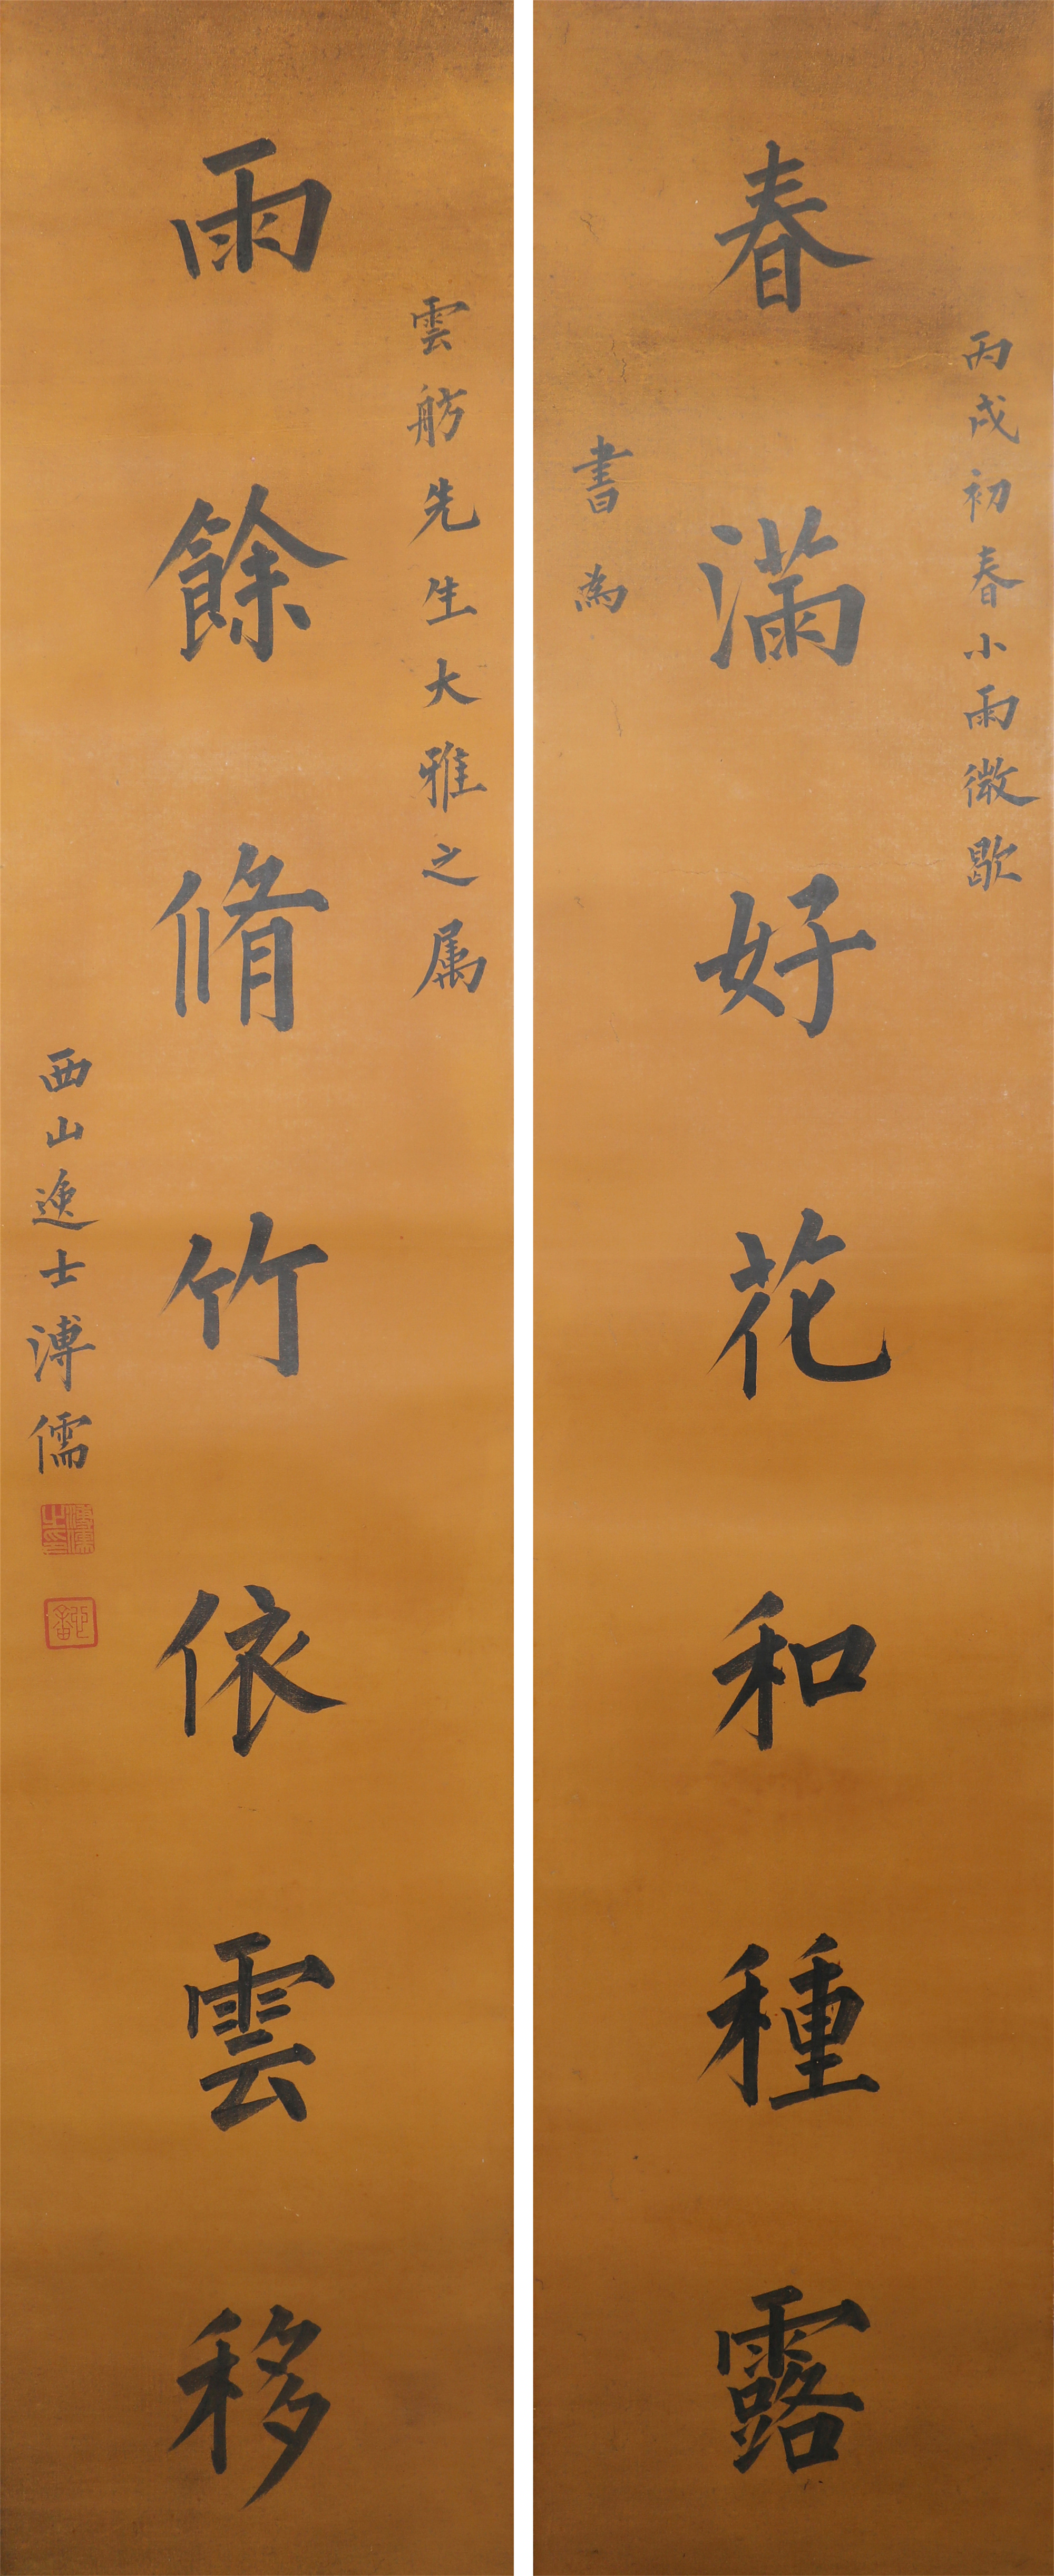 丙戌初春小雨微歇
春滿好花和種露
書為
雲舫先生大雅之属
雨餘脩竹依雲移
西山逸士溥儒
溥儒之印